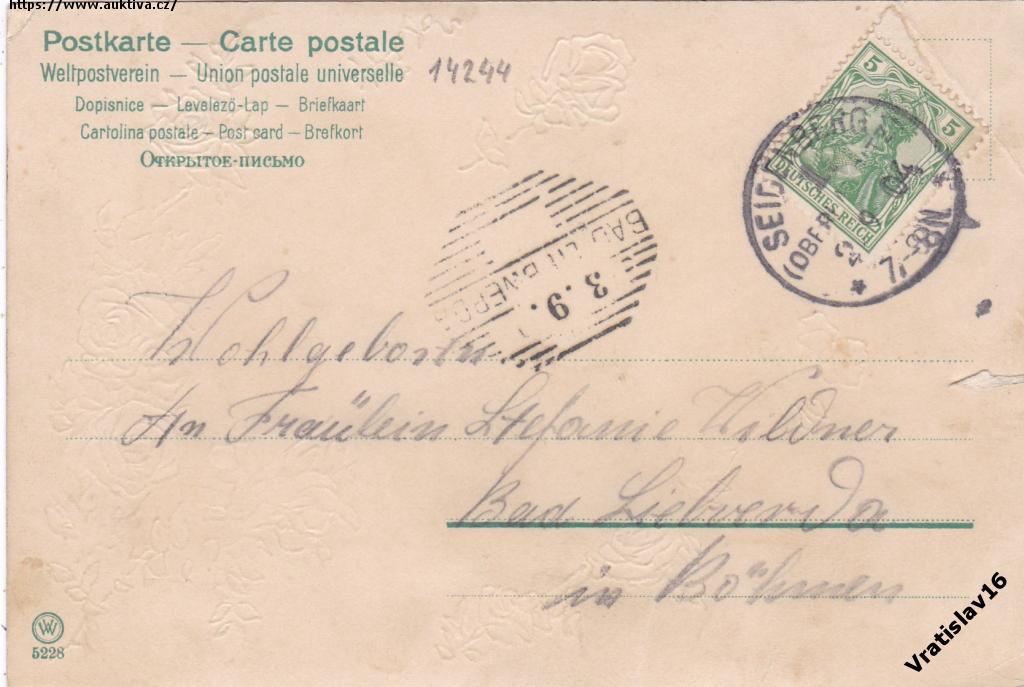 https://www.auktiva.cz/
Postkarte — Carte postale
Weltpostverein — Union postale universelle
14244
Dopisnice — Levelező-Lap — Briefkaart
Cartolina postale — Post card — Brefkort
Открытое-письмо
5
5
DEUTSCHES REICH
SEIDENBERG
7-8N
BAD LIEBWERDA
3.9.
Wohlgeboren
An Fräulein Stefanie Wildner
Bad Liebwerda
in Böhmen
W
5228
Vratislav16